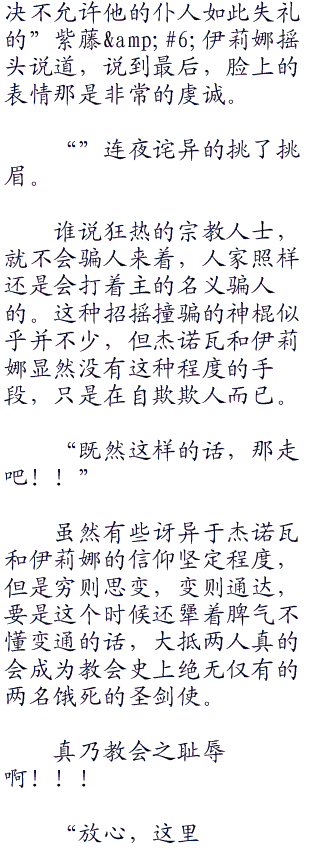 决不允许他的仆人如此失礼
的”紫藤&amp; #6; 伊莉娜摇
头说道，说到最后，脸上的
表情那是非常的虔诚。
“”连夜诧异的挑了挑
眉。
谁说狂热的宗教人士，
就不会骗人来着，人家照样
还是会打着主的名义骗人
的。这种招摇撞骗的神棍似
乎并不少，但杰诺瓦和伊莉
娜显然没有这种程度的手
段，只是在自欺欺人而已。
“既然这样的话，那走
吧！！”
虽然有些讶异于杰诺瓦
和伊莉娜的信仰坚定程度，
但是穷则思变，变则通达，
要是这个时候还犟着脾气不
懂变通的话，大抵两人真的
会成为教会史上绝无仅有的
两名饿死的圣剑使。
真乃教会之耻辱
啊！！！
“放心，这里